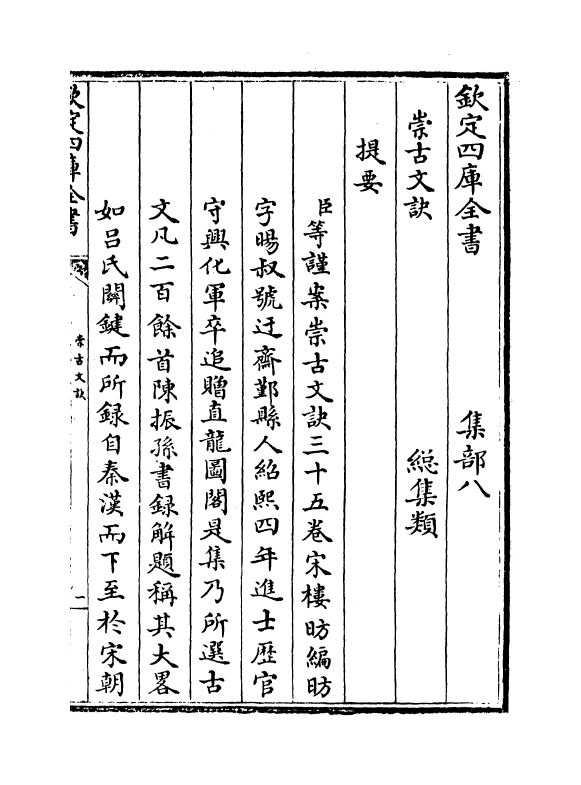 欽定四庫全書　集部八
崇古文訣　緫集類
提要
臣等謹案崇古文訣三十五卷宋樓昉編昉
字暘叔號迂齋鄞縣人紹熙四年進士歴官
守興化軍卒追贈直龍圖閣是集乃所選古
文凡二百餘首陳振孫書録解題稱其大畧
如吕氏闗鍵而所録自秦漢而下至於宋朝
欽定四庫全書
崇古文訣
一